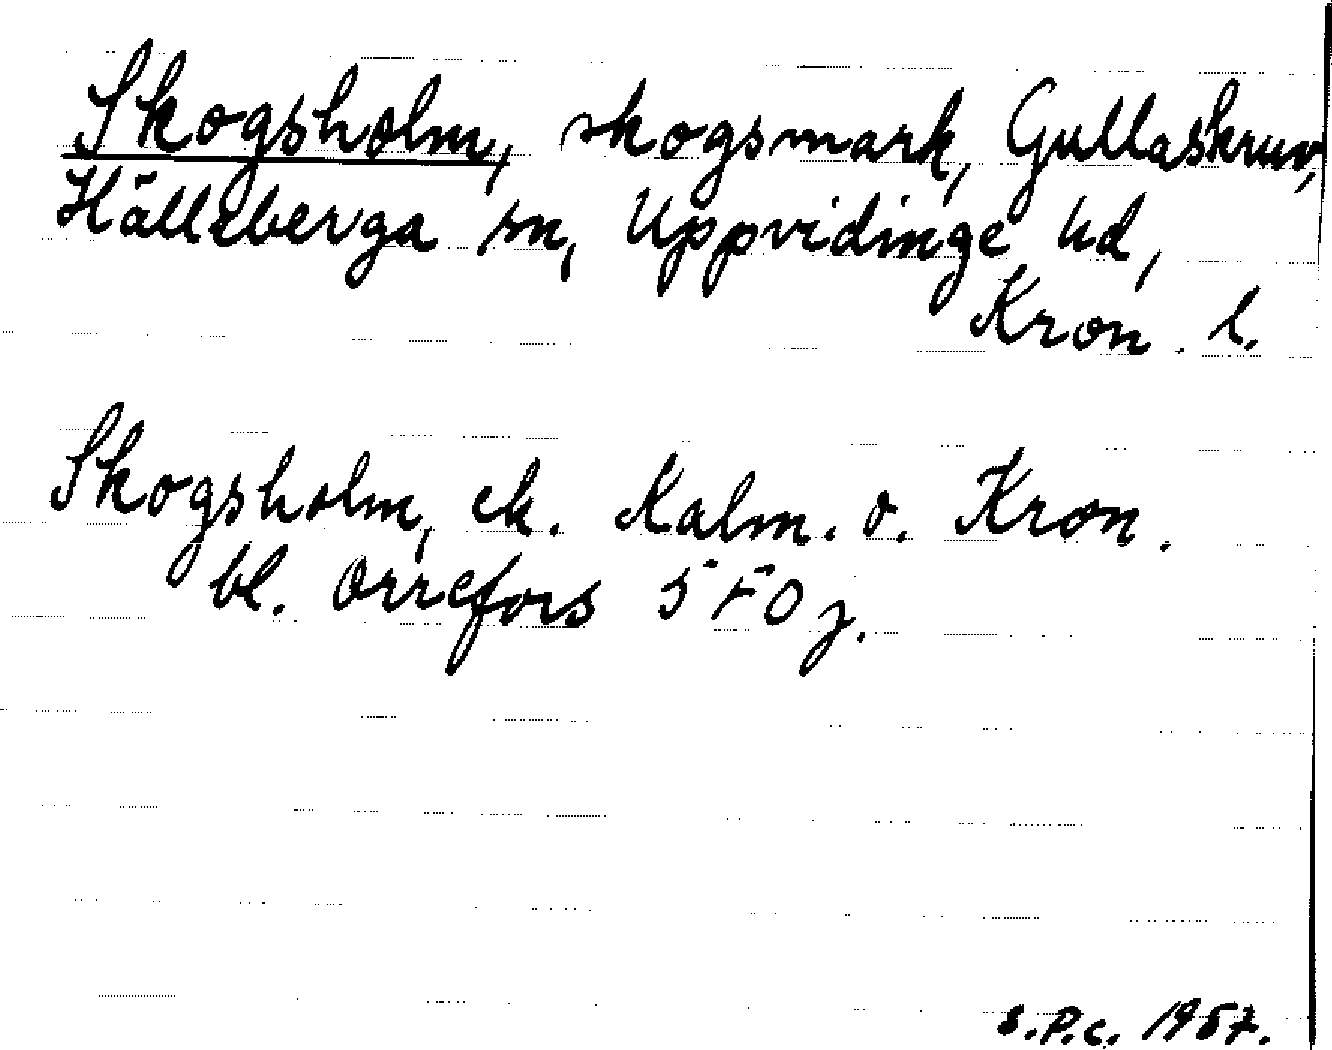 Skogsholm, skogsmark, Gullaskruv,
Hälleberga sn, Uppvidinge hd,
Kron. l.
Skogsholm, ek. Kalm. o. Kron.
bl. Orrefors 5 F0 j.
S.P.C. 1957.